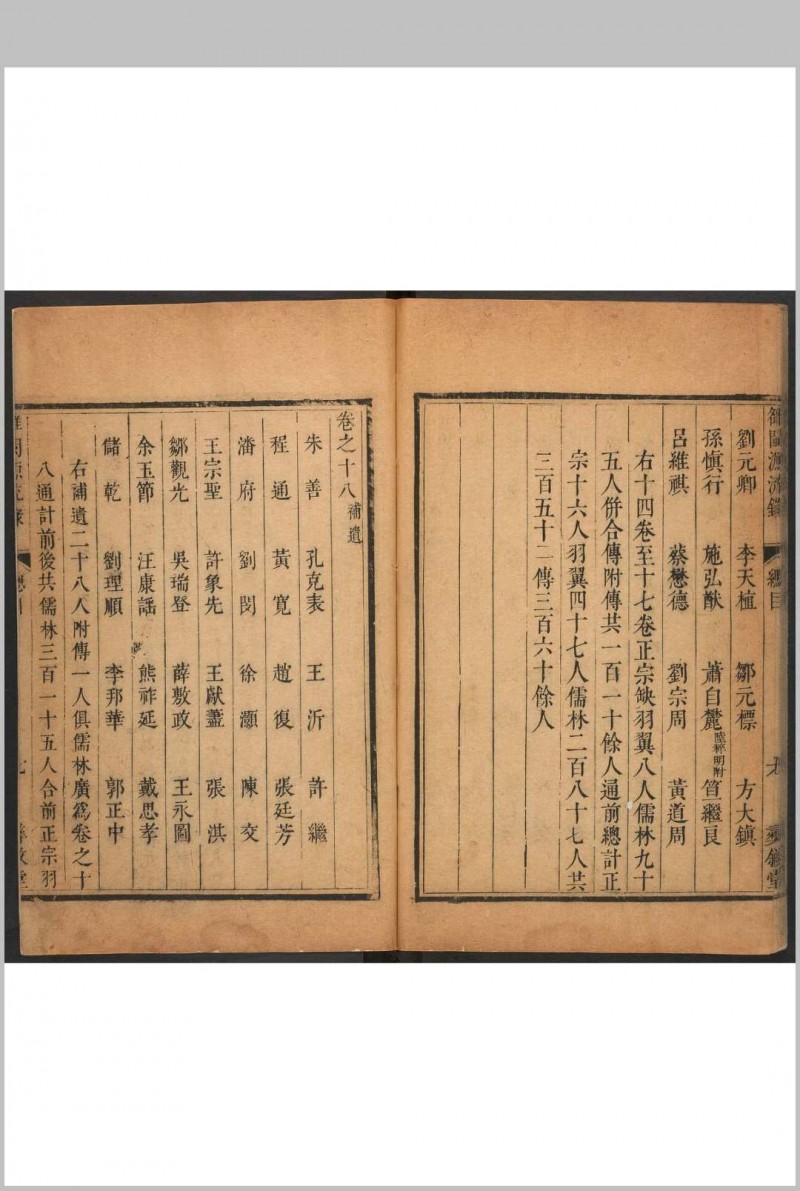 總目
劉元卿 李天植 鄒元標 方大鎮
孫慎行 施弘猷 蕭自麓 陸粹明附 笪繼良
呂維祺 蔡懋德 劉宗周 黃道周
右十四卷至十七卷正宗缺羽翼八人儒林九十
五人併合傳附傳共一百一十餘人通前總計正
宗十六人羽翼四十七人儒林二百八十七人共
三百五十二傳三百六十餘人
卷之十八補遺
朱善 孔克表 王沂 許繼
程通 黃寬 趙復 張廷芳
潘府 劉閔 徐灝 陳交
王宗聖 許象先 王獻藎 張淇
鄒觀光 吳瑞登 薛敷政 王永圖
余玉節 汪康謠 熊祚延 戴思孝
儲乾 劉理順 李邦華 郭正中
右補遺二十八人附傳一人俱儒林廣爲卷之十
八通計前後共儒林三百一十五人合前正宗羽